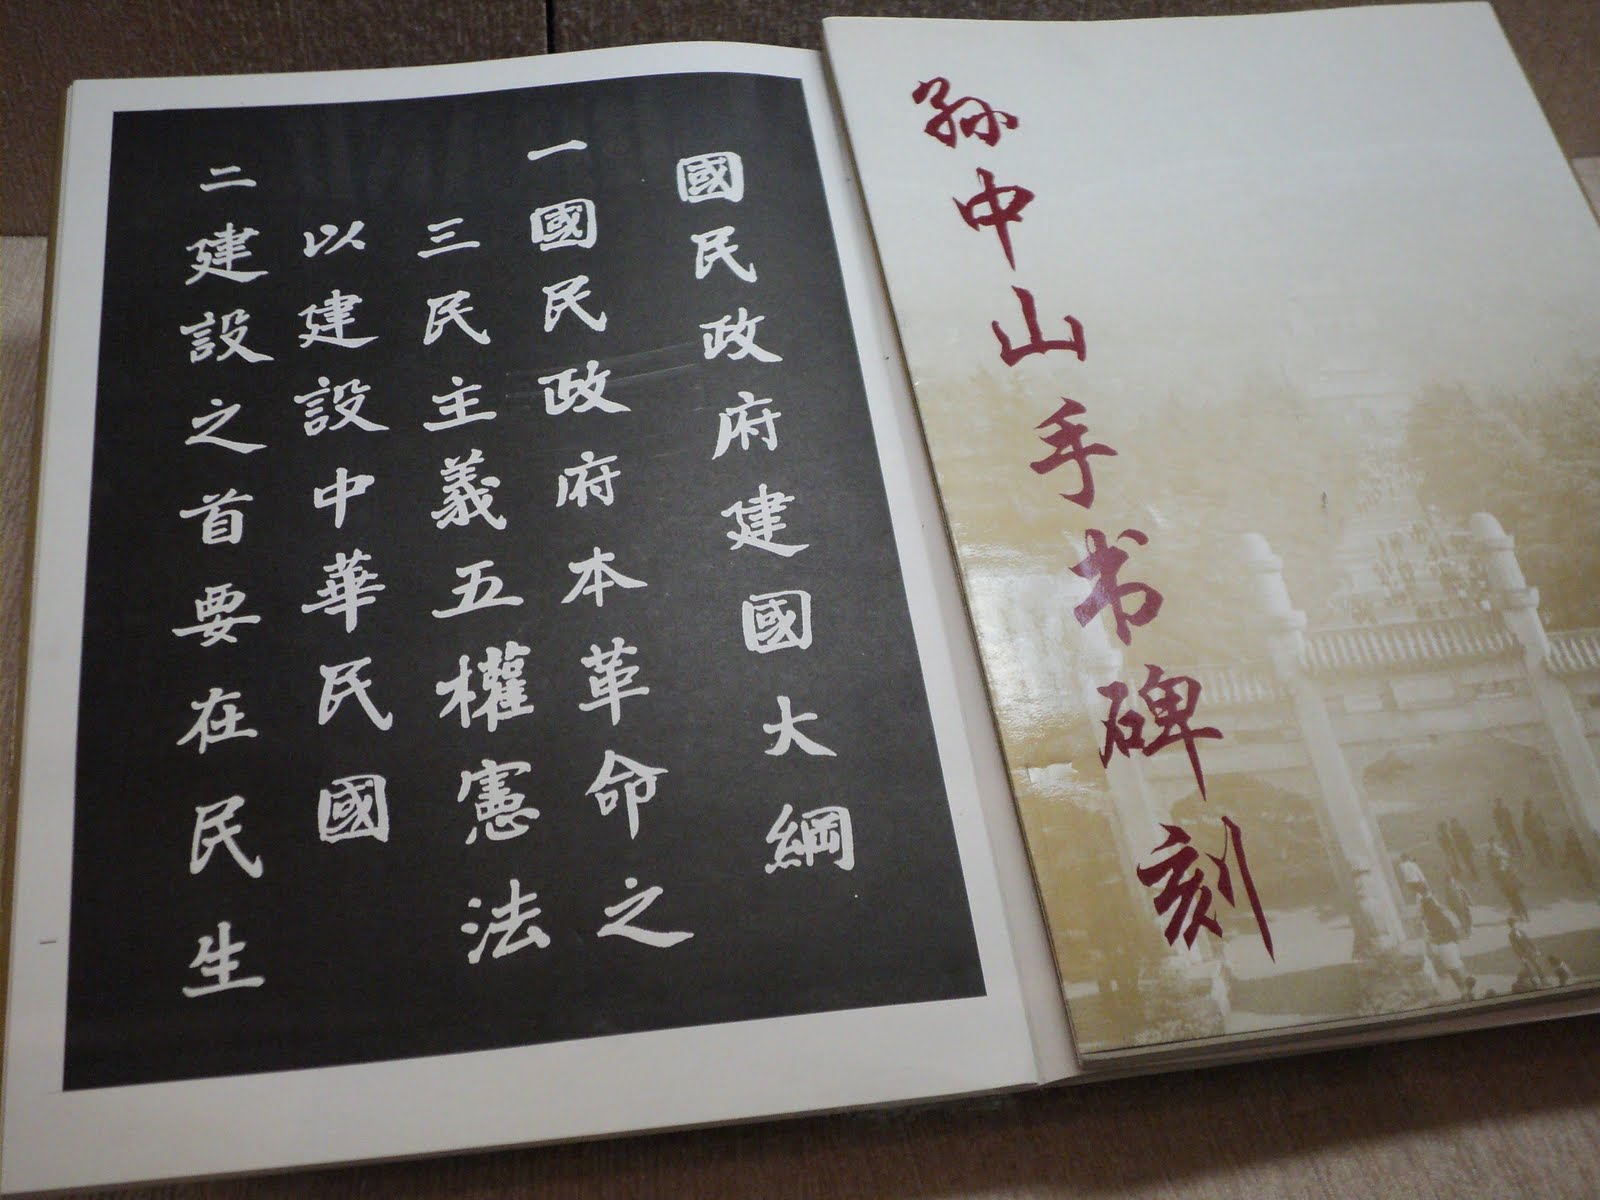 國民政府建國大綱
一國民政府本革命之
三民主義五權憲法
以建設中華民國
二建設之首要在民生
一
孙中山手书碑刻